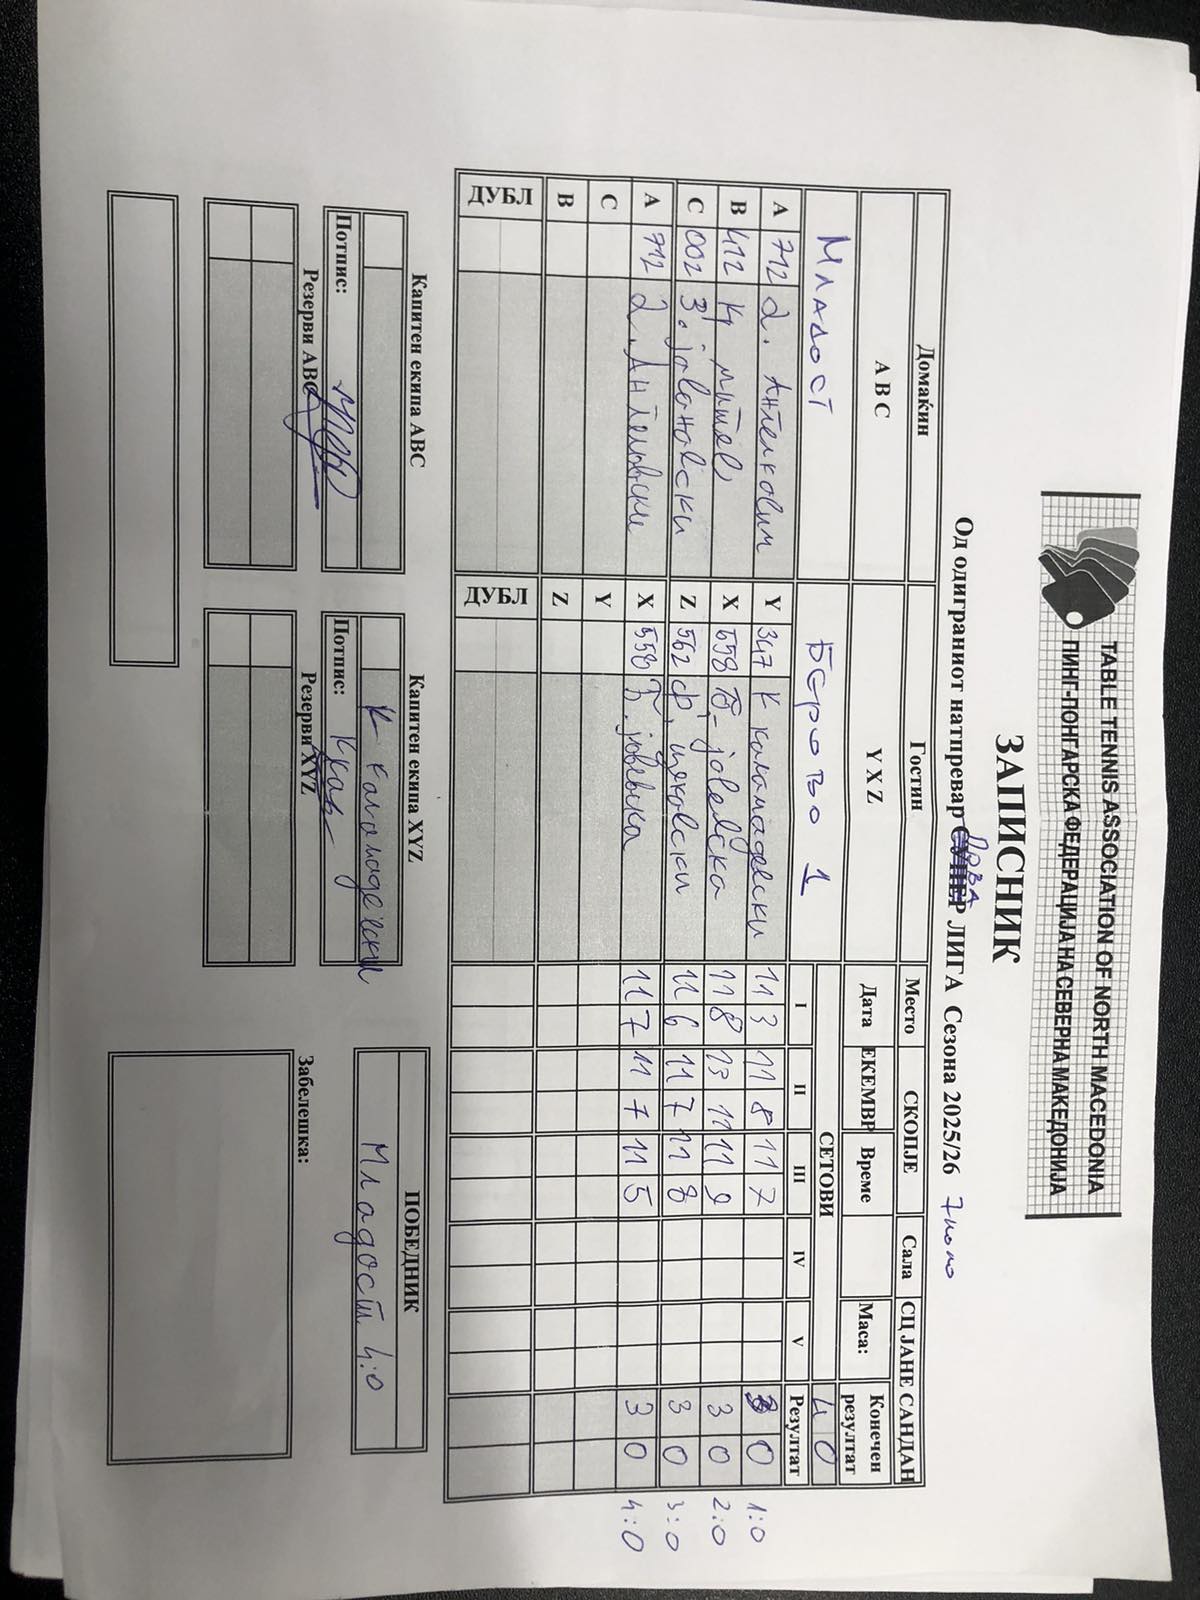 TABLE TENNIS ASSOCIATION OF NORTH MACEDONIA
ПИНГ-ПОНГАРСКА ФЕДЕРАЦИЈА НА СЕВЕРНА МАКЕДОНИЈА
ЗАПИСНИК
Од одиграниот натпревар СУПЕР ПРВА ЛИГА Сезона 2025/26 7 коло
Домаќин Гостин Место СКОПЈЕ Сала СЦ ЈАНЕ САНДАН
A B C Y X Z Дата ЕКЕМВР Време Маса: Конечен резултат
Младост Берово 1 СЕТОВИ 4 0
I II III IV V Резултат
A 712 Y 347 К Каламадевски 11 3 11 8 11 7 3 0 1:0
B 412 К Митев X 558 Јовевска 11 8 13 11 11 9 3 0 2:0
C 002 З. Јовановски Z 562 Ф. 11 6 11 7 11 8 3 0 3:0
A 712 X 558 Јовевска 11 7 11 7 11 5 3 0 4:0
C Y
B Z
ДУБЛ ДУБЛ
Капитен екипа ABC Капитен екипа XYZ ПОБЕДНИК
К Каламадевски Младост 4:0
Потпис: Потпис:
Резерви ABC Резерви XYZ Забелешка: